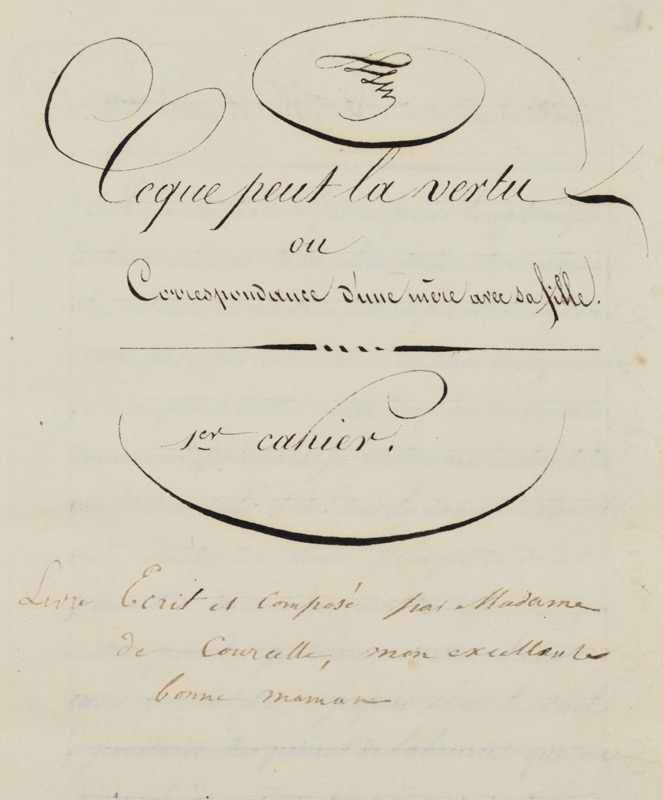 Ceque peut la vertu
ou
Correspondance d'une mère avec sa fille.
1er cahier.
Livre Ecrit et composé par Madame
de Courcelle, mon excellente
bonne maman